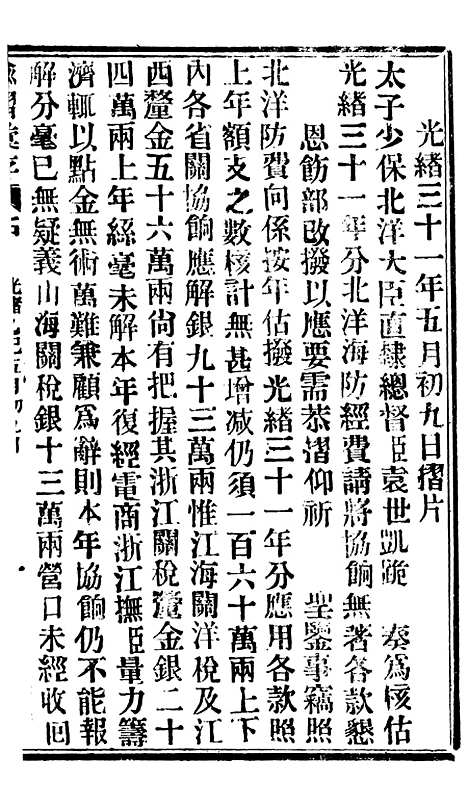 光緒三十一年五月初九日摺片
太子少保北洋大臣直隸總督臣袁世凱跪　奏爲核估
光緒三十一年分北洋海防經費請將協餉無著各款懇
恩飭部改撥以應要需恭摺仰祈　聖鑒事竊照
北洋防費向係按年估撥光緒三十一年分應用各款照
上年額支之數核計無甚增減仍須一百六十萬兩上下
內各省關協餉應解銀九十三萬兩惟江海關洋稅及江
西釐金五十六萬兩尚有把握其浙江關稅釐金銀二十
四萬兩上年絲毫未解本年復經電商浙江撫臣量力籌
濟輒以點金無術萬難兼顧爲辭則本年協餉仍不能報
解分毫已無疑義山海關稅銀十三萬兩營口未經收回